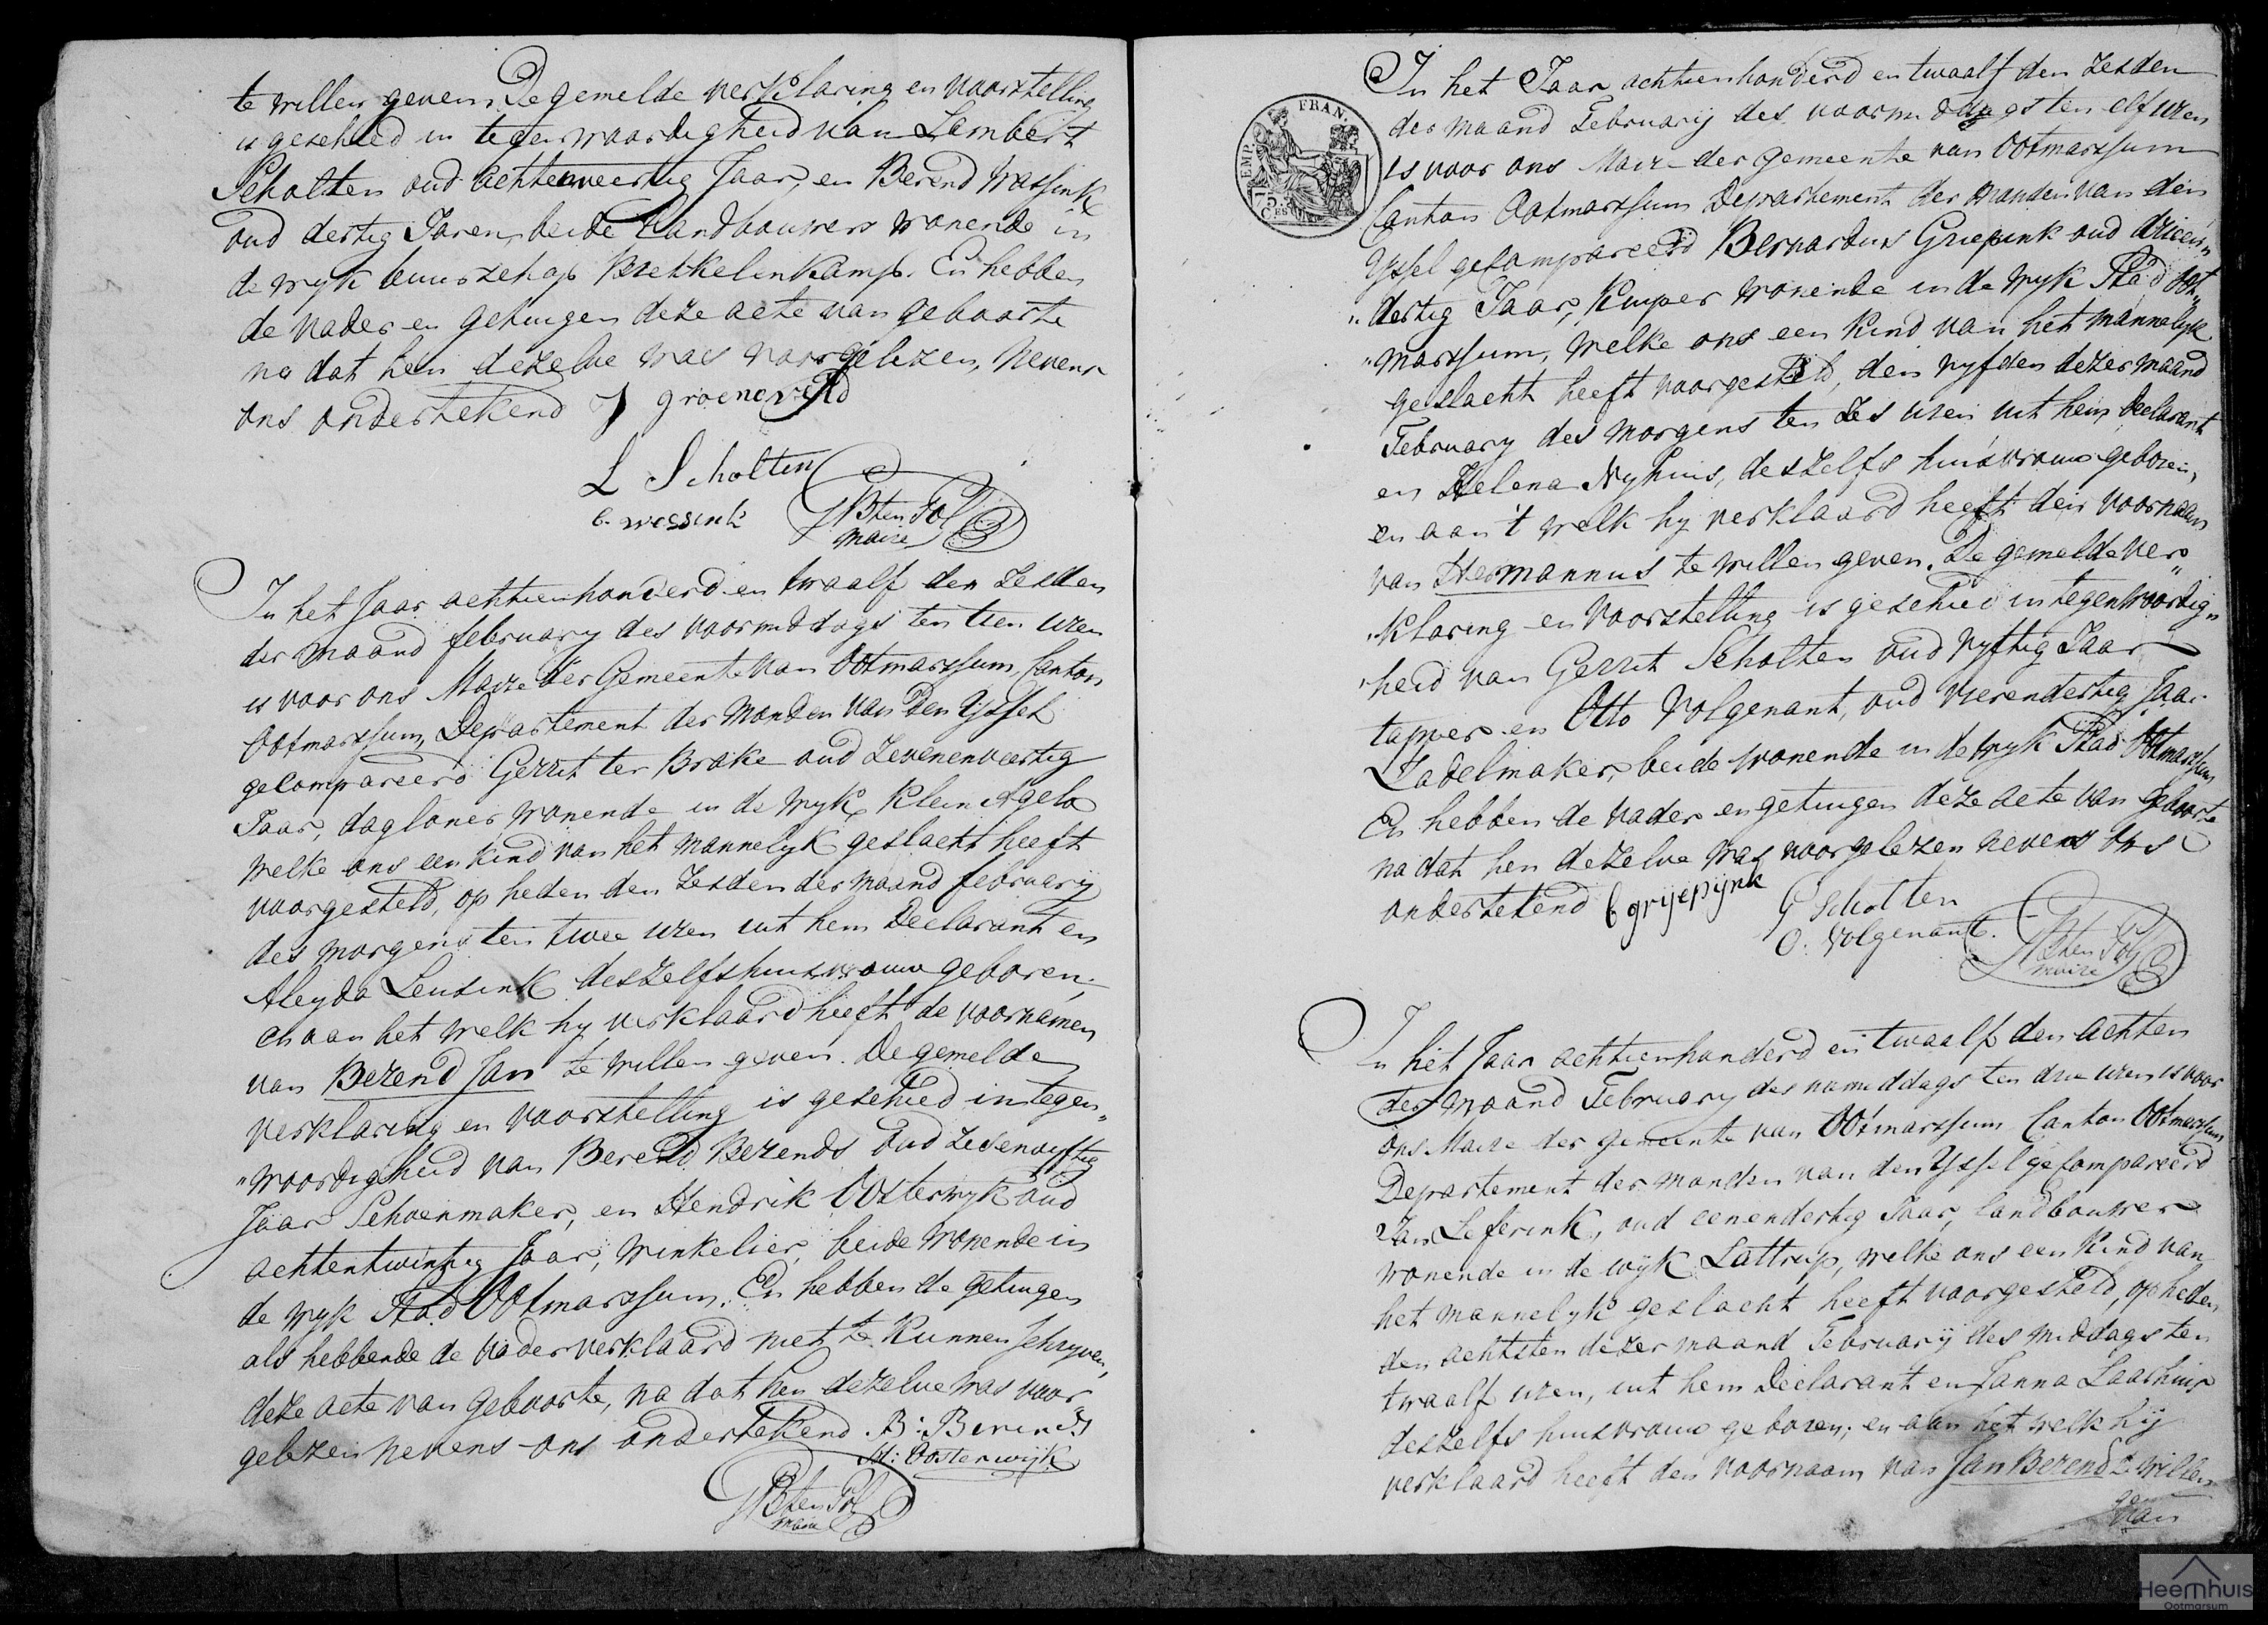 te willen geven. De gemelde verklaring en voorstelling
is geschied in tegenwoordigheid van Lambert
Scholten oud achtenveertig Jaar, en Berend Wassink
oud dertig Jaren, beide Landbouwers wonende in
de wyk buurschap Brekkelenkamp. En hebben
de vader en getuigen deze acte van geboorte
na dat hen dezelve was voorgelezen, nevens
ons ondertekend J groeneveld
L Scholten
b. wessink
JB ten Pol
maire
In het Jaar achtienhonderd en twaalf den zesden
der maand february des voormiddags ten tien uren
is voor ons Maire der Gemeente van Ootmarssum, Canton
Ootmarssum, Departement der Monden van den Yssel
gecompareerd Gerrit ter Brake oud zevenenveertig
Jaar, dagloner wonende in de Wyk Klein Agelo
welke ons een kind van het mannelyk geslacht heeft
voorgesteld, op heden den zesden der maand february
des morgens ten twee uren uit hem Declarant en
Aleyda Leusink deszelfs huisvrouw geboren,
en aan het welk hy verklaard heeft de voornamen
van Berend Jan te willen geven. De gemelde
verklaring en voorstelling is geschied in tegen„
„woordigheid van Berend Berends oud zesenvyftig
Jaar Schoenmaker, en Hendrik Oosterwyk oud
achtentwintig Jaar, Winkelier, beide wonende in
de wyk Stad Ootmarssum. En hebben de getuigen
als hebbende de vader verklaard niet te kunnen schryven,
deze acte van geboorte, na dat hen dezelve was voor
gelezen nevens ons ondertekend. B: Berends
H: Oosterwijk
JB ten Pol
maire
EMP. FRAN.
75.
CES
In het Jaar achtienhonderd en twaalf den zesden
der maand February des voormiddags ten elf uren
is voor ons Maire der gemeente van Ootmarssum
Canton Ootmarssum Departement der monden van den
Yssel gecompareerd Bernardus Griepink oud drieën„
„dertig Jaar, Kuyper wonende in de Wyk Stad Oot„
„marssum, welke ons een Kind van het mannelyk
geslacht heeft voorgesteld, den vyfden dezer maand
February des morgens ten zes uren uit hem Declarant
en Helena Nyhuis, deszelfs huisvrouw geboren,
en aan 't welk hy verklaard heeft den voornaam
van Hermannus te willen geven. De gemelde ver„
„klaring en voorstelling is geschied in tegenwoordig„
„heid van Gerrit Scholten oud vyftig Jaar
tapper en Otto Volgenant, oud vierendertig Jaar
Zadelmaker, beide wonende in de wyk Stad Ootmarssum
En hebben de vader en getuigen deze acte van geboorte
na dat hen dezelve was voorgelezen nevens ons
ondertekend b grijepijnk
G Scholten
O. Volgenant.
JB ten Pol
maire
In het Jaar achtienhonderd en twaalf den achten
der maand February des namiddags ten drie uren is voor
ons Maire der gemeente van Ootmarssum Canton Ootmarssum
Departement der monden van den Yssel gecompareerd
Jan Leferink, oud eenendertig Jaar, landbouwer
wonende in de wyk Lattrup, welke ons een Kind van
het mannelyk geslacht heeft voorgesteld, op heden
den achtsten dezer maand February des middags ten
twaalf uren, uit hem Declarant en Janna Laarhuis
deszelfs huisvrouw geboren; en aan het welk hij
verklaard heeft den voornaam van Jan Berend te willen
Heemhuis
Ootmarsum